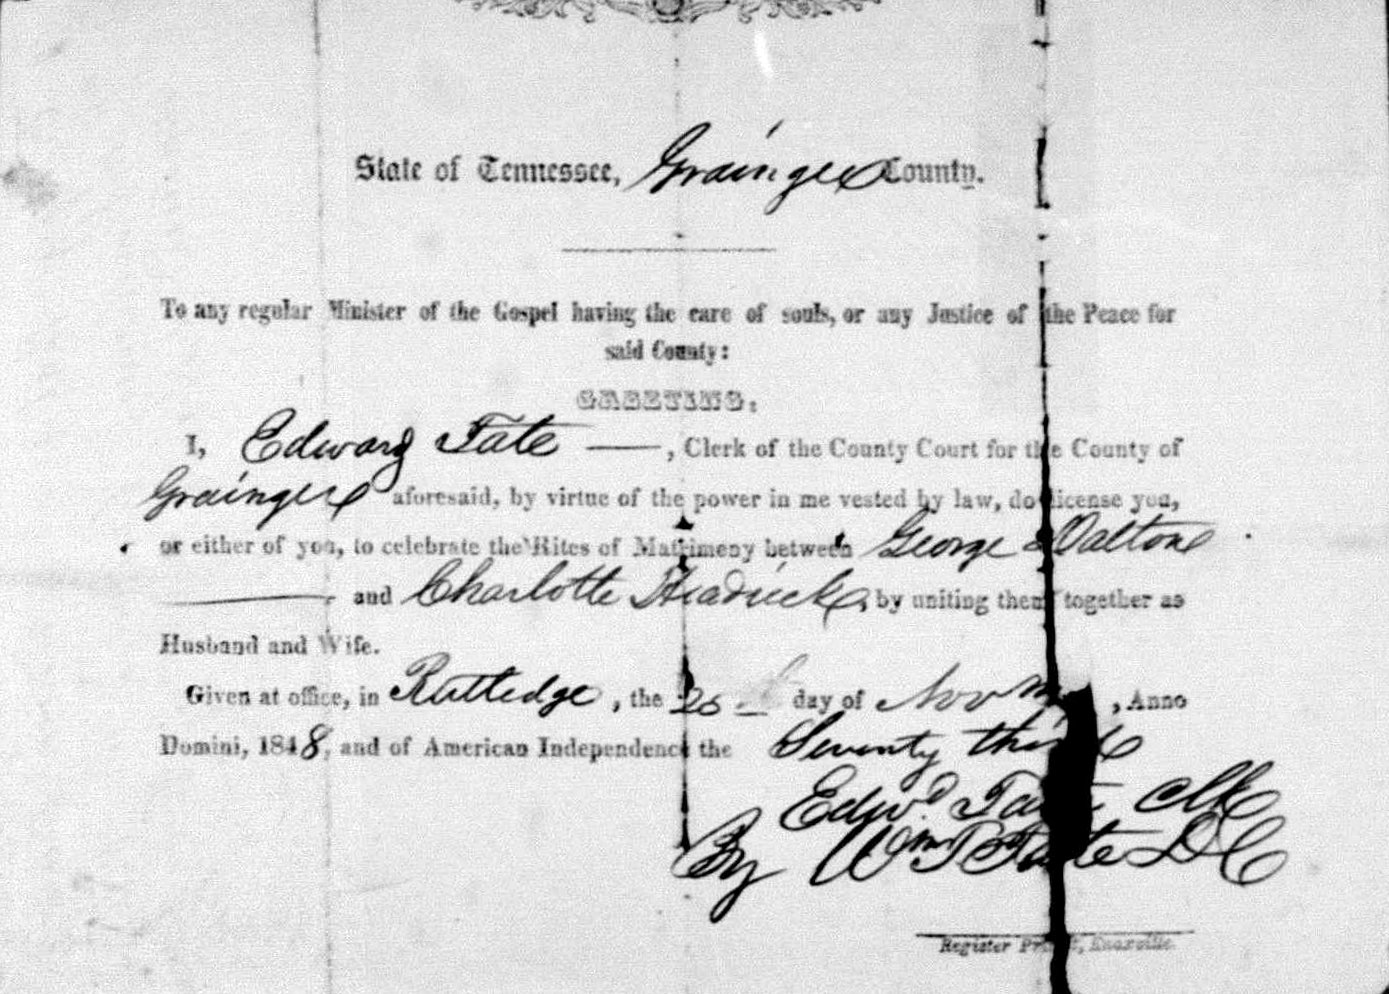 State of Tennessee, Grainger County.
To any regular Minister of the Gospel having the care of souls, or any Justice of the Peace for
said County:
GREETING:
I, Edward Tate —, Clerk of the County Court for the County of
Grainger aforesaid, by virtue of the power in me vested by law, do license you,
or either of you, to celebrate the Rites of Matrimony between George Walton
and Charlotte Headrick, by uniting them together as
Husband and Wife.
Given at office, in Rutledge, the day of Novm, Anno
Domini, 1848, and of American Independence the Seventy third
Edwd. Tate Clk
By Wm Tate DC
Register Print, Knoxville.